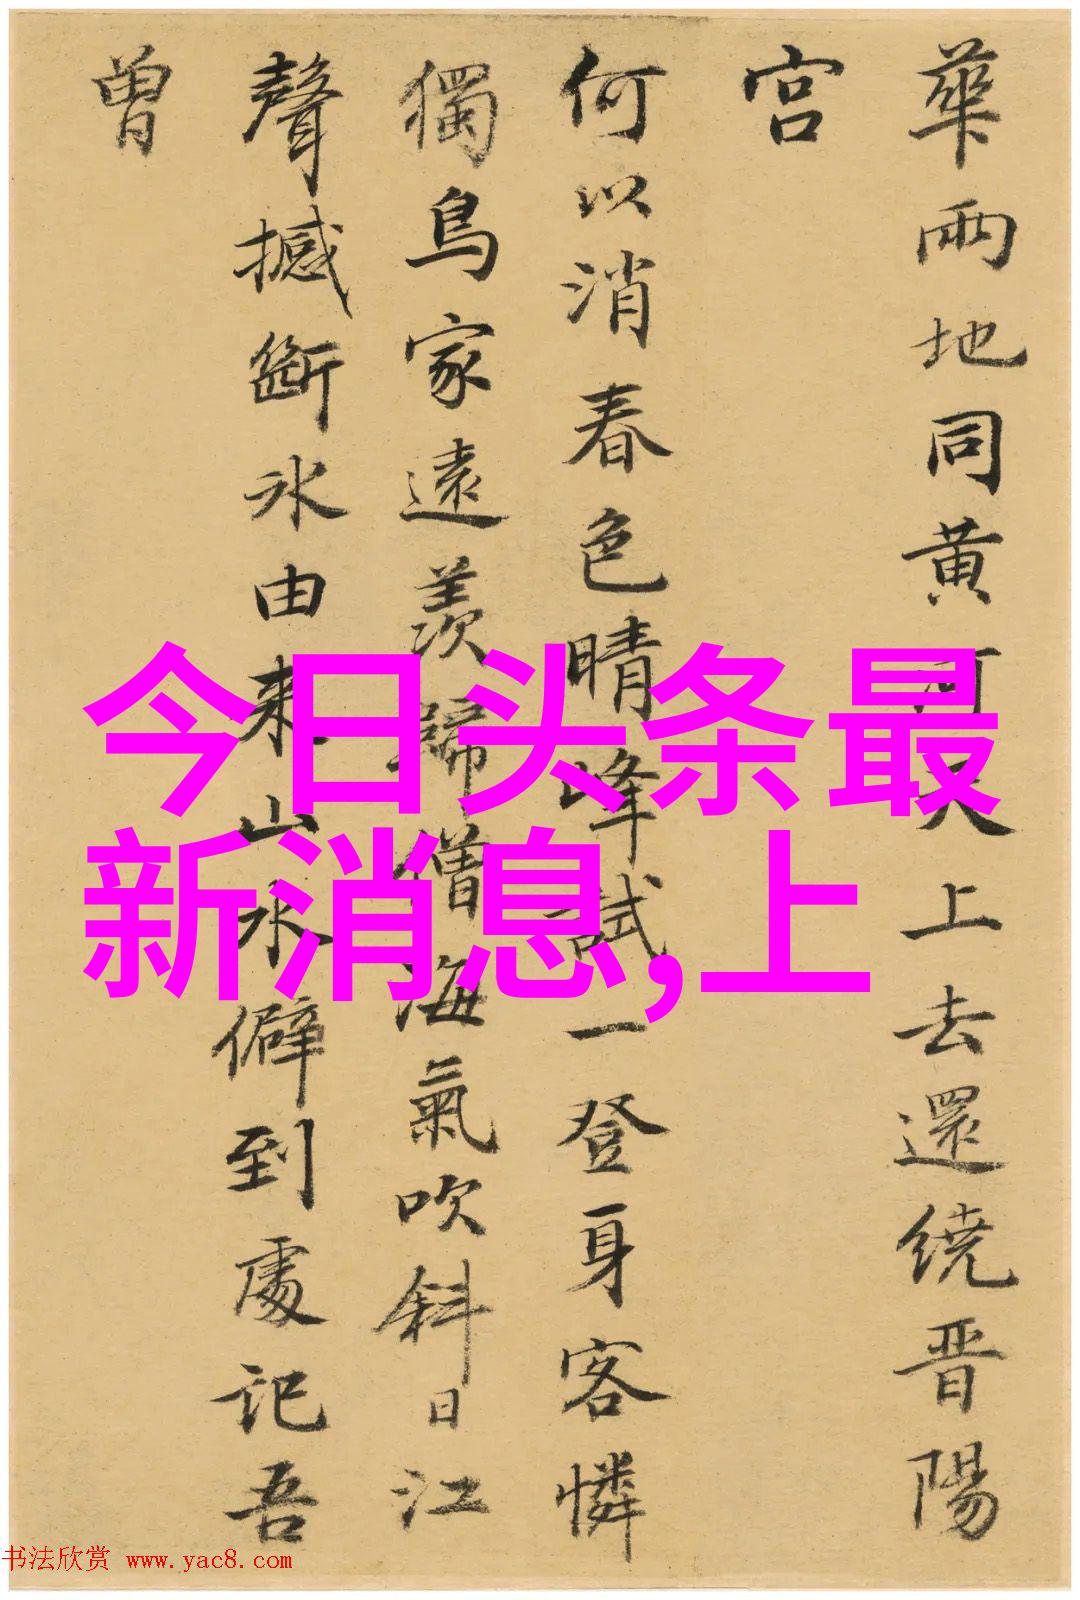 華兩地同黄河天上去還繞晋陽
宫
何以消春色晴峰試一登身客憐
獨鳥家遠羨歸僧海氣吹斜日江
聲撼斷冰由来山水僻到處記吾
曾
今日头条最
新消息,上
书法欣赏 www.yac8.com